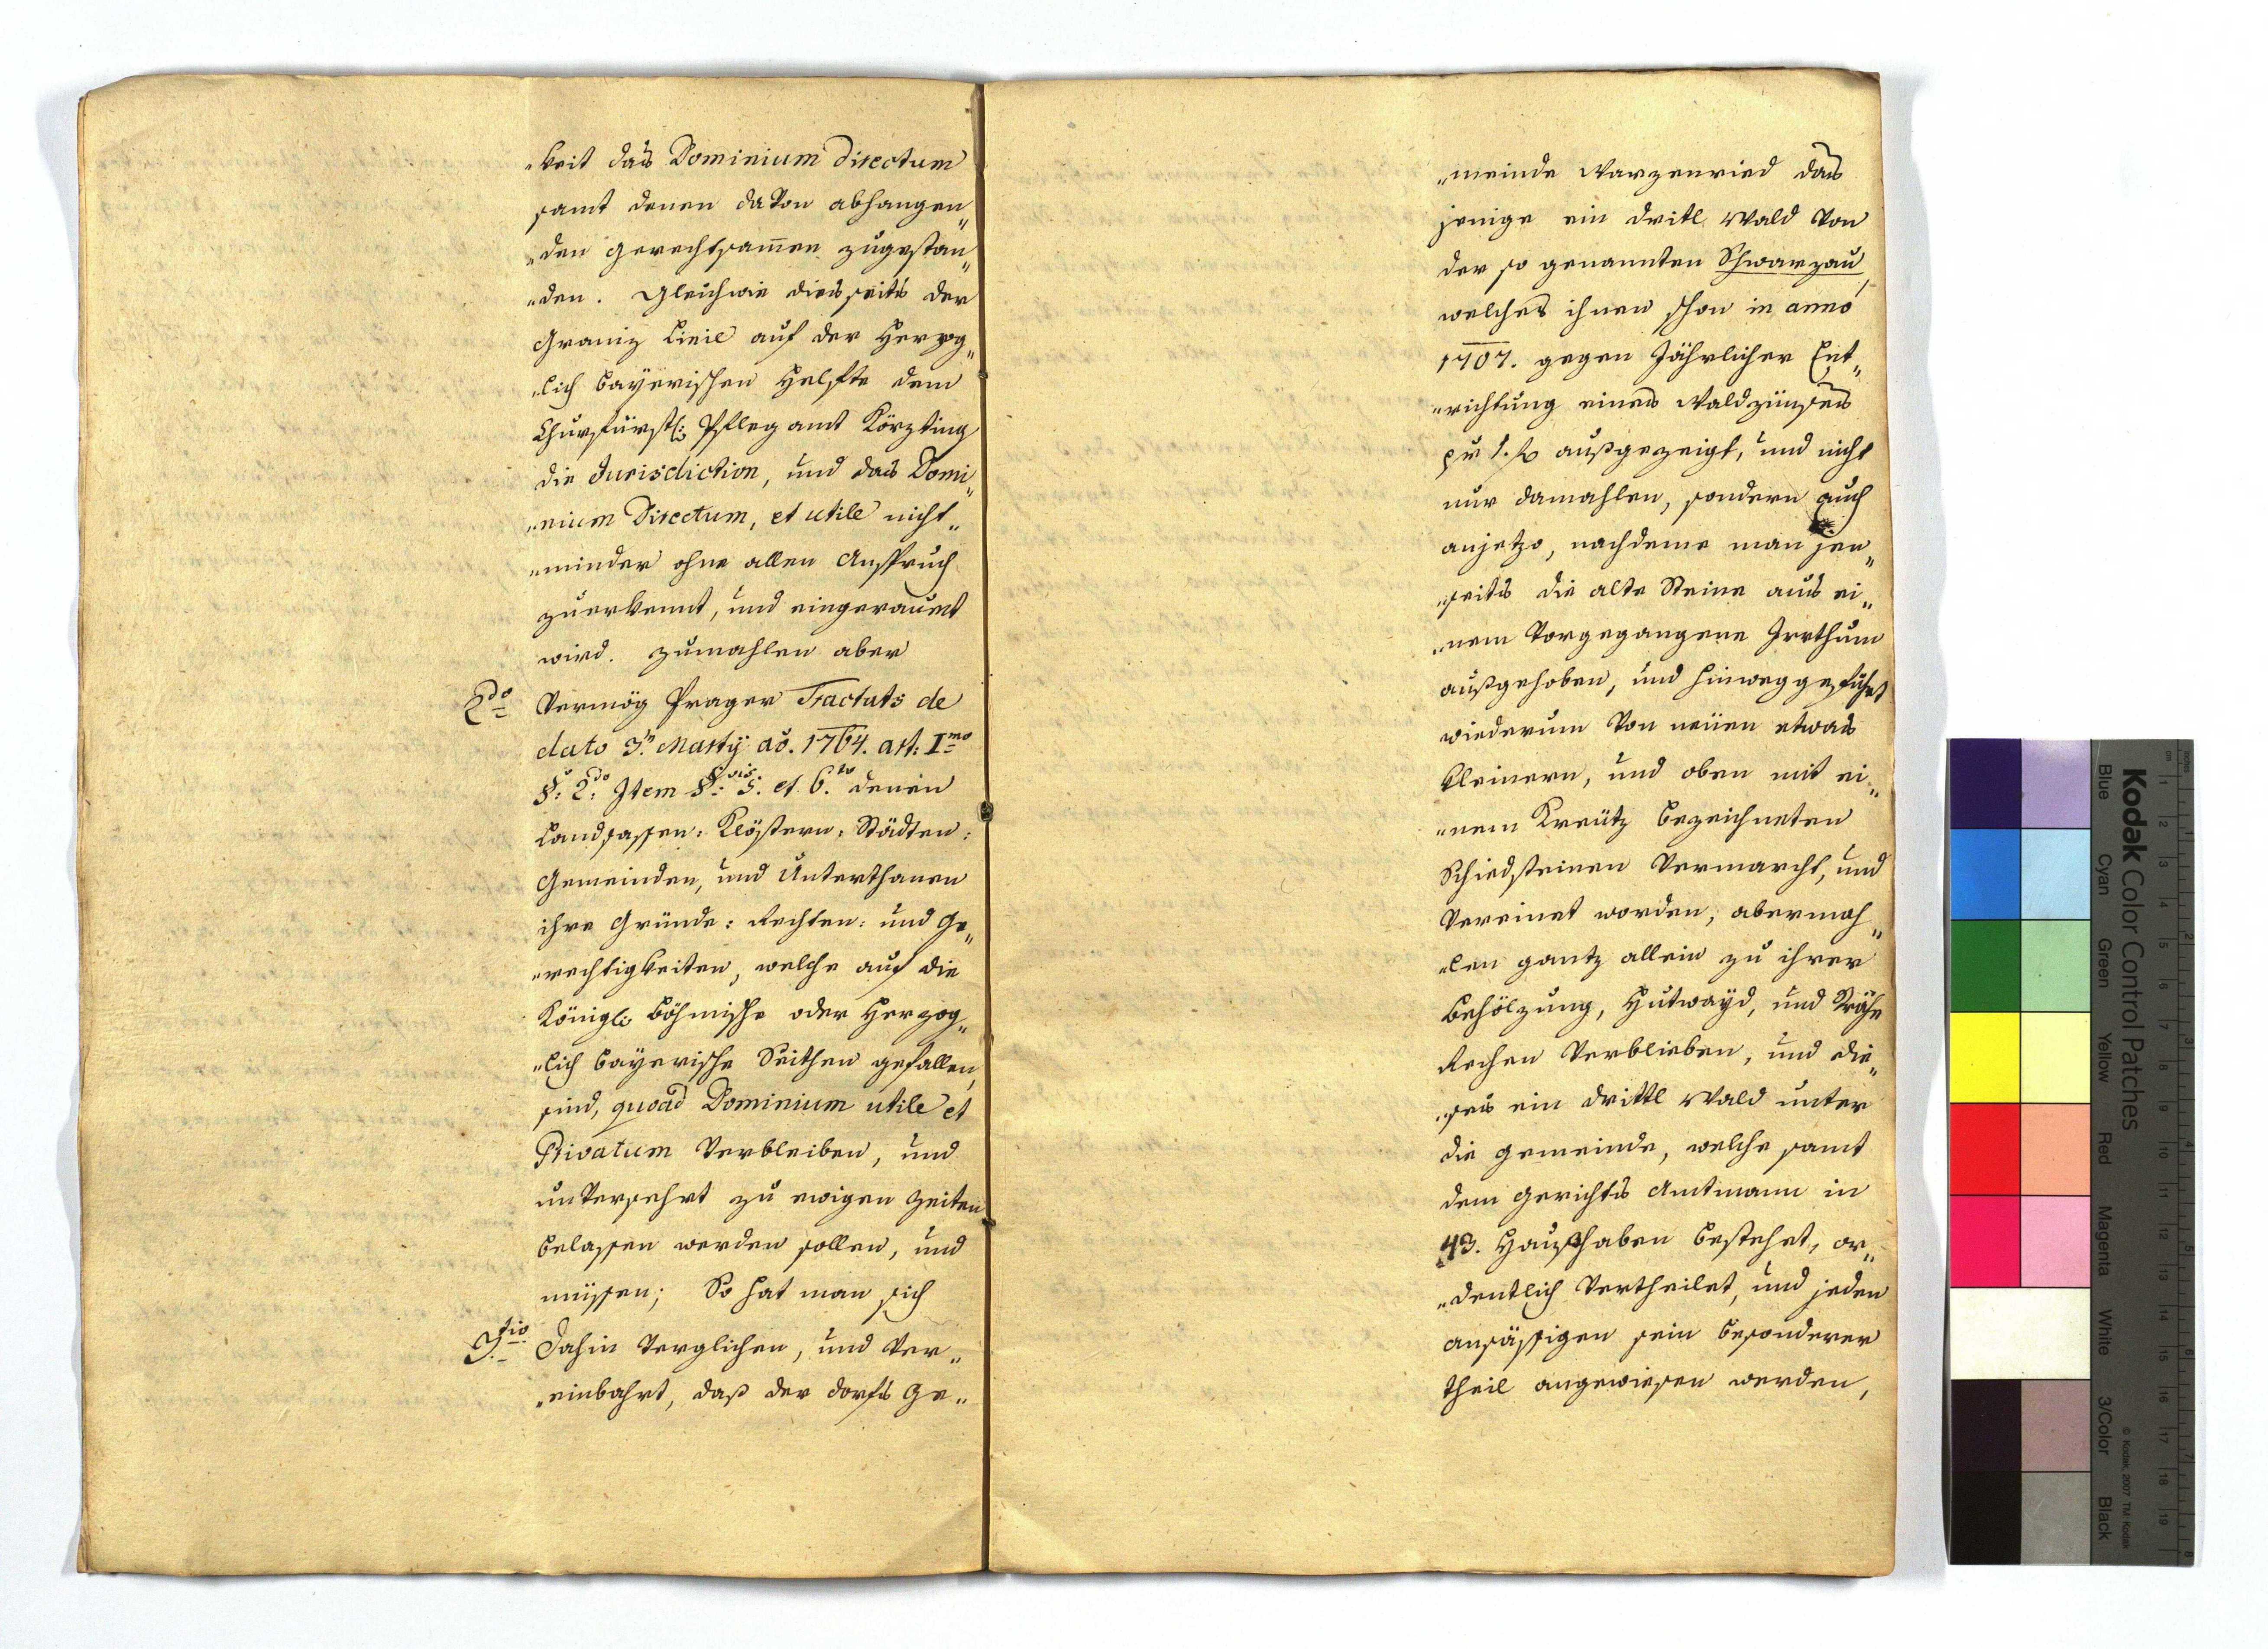 „keit das Dominium directum
samt denen davon abhangen„
„den gerechtsam̄en zugestan„
„den. Gleichwie diesseits der
Graniz Linie auf der Herzog„
„lich bayerischen Helfte dem
Churfürstl: Pfleg amt Közting
die Jurisdiction, und das Domi„
„nium Directum, et utile nicht„
„minder ohne allen Anspruch
zuerkennt, und eingeraumt
wird. Zumahlen aber
2do Vermög Prager Tractats de
dato 3.n Martÿ aõ. 1764. art: Imo
§: 2do: Item §: vis. 5. et 6.to denen
Landsassen: Klöstern: Städten:
Gemeinden, und Unterthanen
ihre Gründe: Rechten: und Ge„
„rechtigkeiten, welche auf die
Königl: böhmische oder Herzog„
„lich bayerische Seithen gefallen
sind, quoad Dominium utile et
Privatum verbleiben, und
unversehrt zu ewigen Zeiten
belassen werden sollen, und
müssen; So hat man sich
3.tio Dahin verglichen, und ver„
„einbahrt, daß der dorfs Ge„
„meinde Warzenried das
jenige ein dritl Wald von
der so genannten Schwarzau,
welches ihnen schon in anno
1707. gegen Jährlicher Ent„
„richtung eines Waldzünses
pr 1. fl außgezeigt, und nicht
nur damahlen, sondern auch
anjetzo, nachdeme man jen„
„seits die alte Steine aus ei„
„nem vorgegangene Irrthum
außgehoben, und hinweggeführt
wiederum von neuen etwas
kleinern, und oben mit ei„
„nem Kreutz bezeichneten
Schiedsteinen vermarcht, und
vereinet worden, abermah„
„len gantz allein zu ihrer
behölzung, Hutwayd, und Sträh
Rechen verblieben, und die„
„ses ein drittl Wald unter
die gemeinde, welche samt
dem gerichts Amtmann in
43. Haußhaben bestehet, or„
„dentlich vertheilet, und jeden
ansässigen sein besonderer
theil angewiesen werden,
Kodak Color Control Patches
Blue Cyan Green Yellow Red Magenta White 3/Color Black
© Kodak, 2007 TM: Kodak